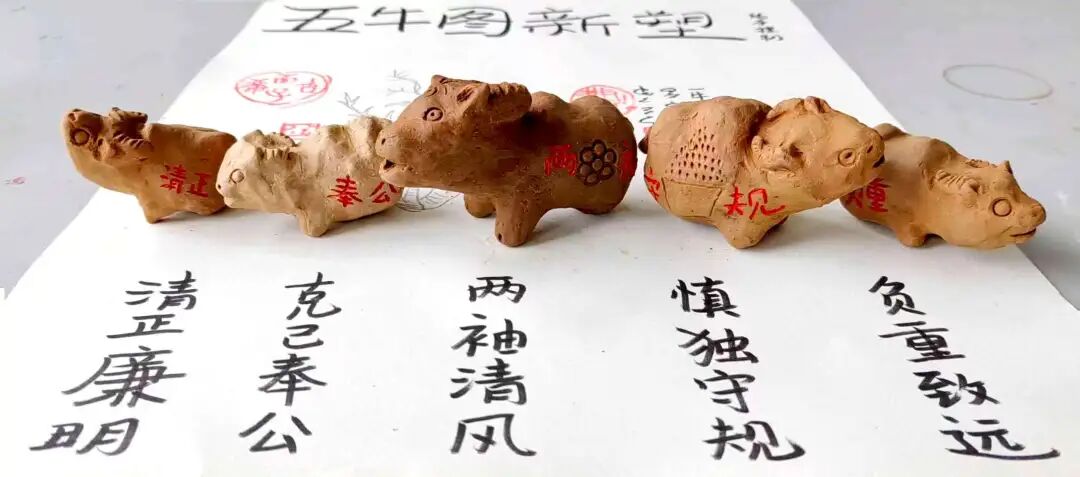 五牛图新塑
清正
奉公
两
规
重
清正廉明
克己奉公
两袖清风
慎独守规
负重致远